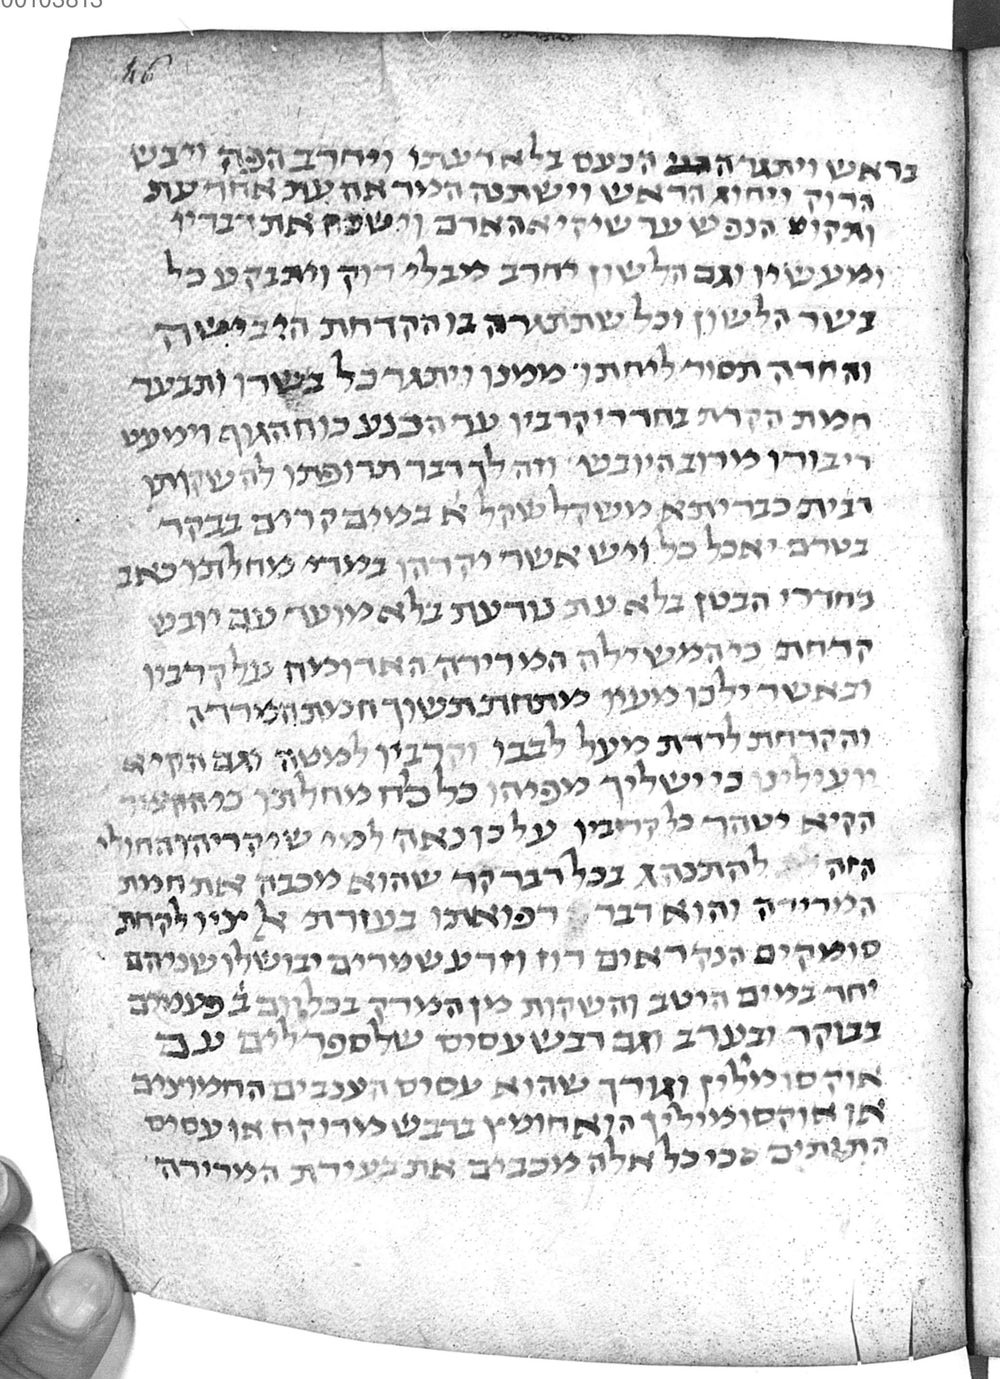 00103813
46
בראש ויתגר הגם הכעס בלא דעתו ויחרב הפה ויבש
הרוק ויחוג הראש וישתנה המראה עת אחר עת
ותקוץ הנפש עד שיקיא האדם וישכח את דבריו
ומעשיו וגם הלשון יחרב מבלי רוק ויתבקע כל
בשר הלשון וכל שתתגרה בו הקדחת היבישה
והחדה תסור ליחתו ממנו ויתגר כל בשרו ותבער
חמת הקדח בחדרי קרביו עד היכנע כוח הגוף וימעט
דיבורו מרוב היובש וזה לך דבר תרופתו להשקותו
רבית כבריתא משקל שקל א במים קרים בבקר
בטרם יאכל כל ויש אשר יקרהו במדי מחלתו כאב
בחדרי הבטן בלא עת נודעת בלא מועד עם יובש
קדחת כי המשילה המרירה האדומה על קרביו
וכאשר ילכו מעיו מתחת תשוך חמת המררה
והקדחת לרדת מעל לבבו וקרביו למטה וגם הקיא
יועילינו כי ישליך מפיהו כל לח מחלתו כי
הקיא יטהר כל קרביו על כן נאה למי שיקריהו החולי
הזה להתנהג בכל דבר קר שהוא מכבה את חמת
המרירה והוא דבר רפואתו בעזרת אל יצוו לקחת
סומקים הנקראים רוז וזרע שמרים יבושלו שניהם
יחד במים היטב והשקות מן המרק בכל יום ב פעמים
בבוקר ובערב וגם דבש עסיס של ספרגלים עם
אוקסומילין וגורך שהוא עסיס הענבים החמוצים
או אוקסומילין הוא חומץ בדבש מרוקח או עסיס
התותים כי כל אלה מכבים את בעירת המרירה